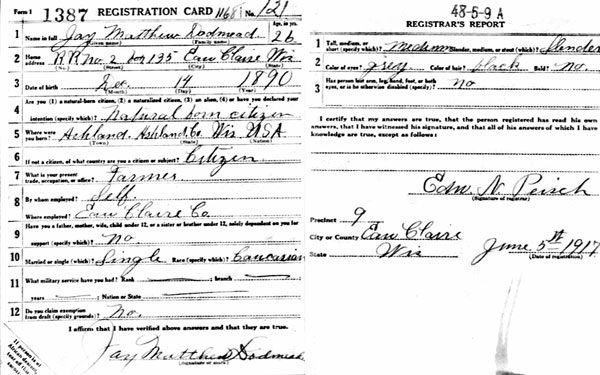 Form 1 1387 REGISTRATION CARD No. 121
1 Name in full Jay Matthew Dodmead Age, in yrs. 26
(Given name) (Family name)
2 Home address R.R. No. 2 Box 135 Eau Claire Wis
(No.) (Street) (City) (State)
3 Date of birth Dec. 14 1890
(Month) (Day) (Year)
4 Are you (1) a natural-born citizen, (2) a naturalized citizen, (3) an alien, (4) or have you declared your
intention (specify which)? Natural born citizen
5 Where were you born? Ashland, Ashland Co Wis. USA
(Town) (State) (Nation)
6 If not a citizen, of what country are you a citizen or subject? Citizen
7 What is your present trade, occupation, or office? Farmer
8 By whom employed? Self
Where employed? Eau Claire Co
9 Have you a father, mother, wife, child under 12, or a sister or brother under 12, solely dependent on you for
support (specify which)? No
10 Married or single (which)? Single Race (specify which)? Caucasian
11 What military service have you had? Rank ; branch
years ; Nation or State
12 Do you claim exemption from draft (specify grounds)? No.
I affirm that I have verified above answers and that they are true.
Jay Matthew Dodmead
If person is of African descent, tear off this corner
48-5-9 A
REGISTRAR'S REPORT
1 Tall, medium, or short (specify which)? Medium Slender, medium, or stout (which)? Slender
2 Color of eyes? Grey Color of hair? Black Bald? No.
3 Has person lost arm, leg, hand, foot, or both eyes, or is he otherwise disabled (specify)? No
I certify that my answers are true, that the person registered has read his own
answers, that I have witnessed his signature, and that all of his answers of which I have
knowledge are true, except as follows:
Edw. N. Peisch
(Signature of registrar)
Precinct 9
City or County Eau Claire
State Wis June 5th 1917
(Date of registration)